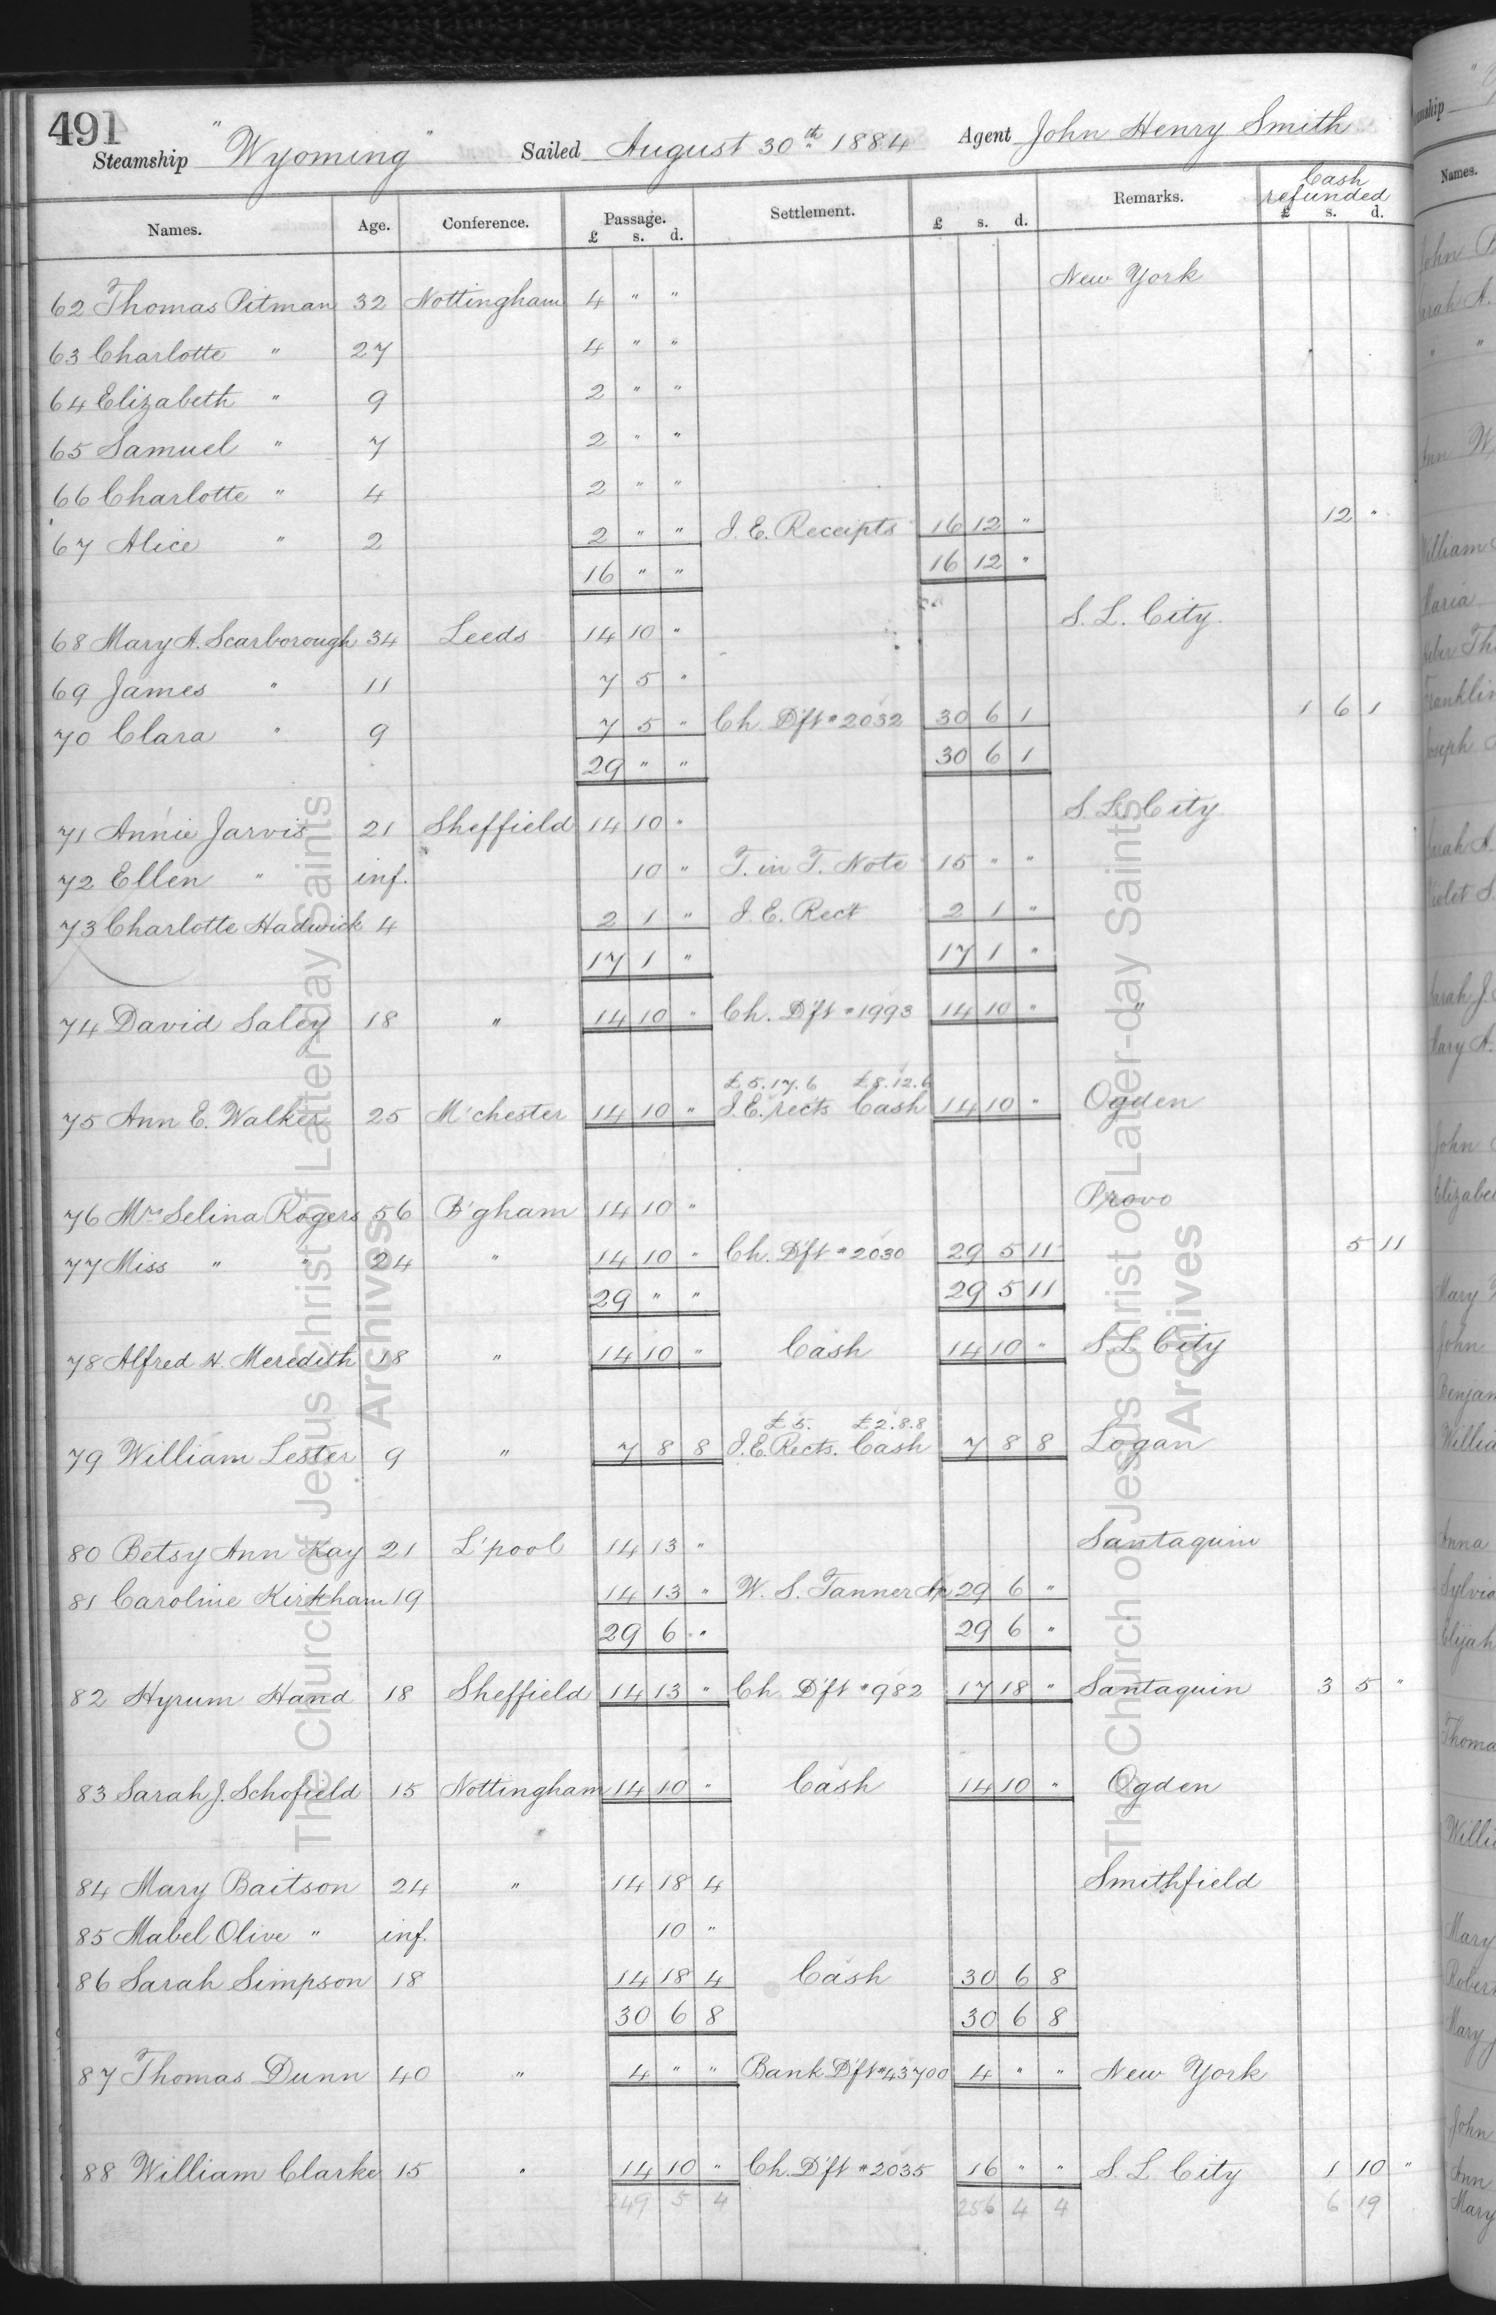 491
Steamship "Wyoming" Sailed August 30th 1884 Agent John Henry Smith
Names. Age. Conference. Passage. £ s. d. Settlement. £ s. d. Remarks. Cash refunded £ s. d.
62 Thomas Pitman 32 Nottingham 4 " " New York
63 Charlotte " 27 4 " "
64 Elizabeth " 9 2 " "
65 Samuel " 7 2 " "
66 Charlotte " 4 2 " "
67 Alice " 2 2 " " I. E. Receipts 16 12 " 12 "
16 " " 16 12 "
68 Mary A. Scarborough 34 Leeds 14 10 " S. L. City
69 James " 11 7 5 "
70 Clara " 9 7 5 " Ch. Dft # 2032 30 6 1 1 6 1
29 " " 30 6 1
71 Annie Jarvis 21 Sheffield 14 10 " S. L. City
72 Ellen " inf. 10 " T. in T. Note 15 " "
73 Charlotte Hadwick 4 2 1 " I. E. Rect 2 1 "
17 1 " 17 1 "
74 David Saley 18 " 14 10 " Ch. Dft # 1993 14 10 " "
£5.17.6 £8.12.6
75 Ann E. Walker 25 M'chester 14 10 " I.E. rects Cash 14 10 " Ogden
76 Mrs Selina Rogers 56 B'gham 14 10 " Provo
77 Miss " " 24 " 14 10 " Ch. Dft # 2030 29 5 11 5 11
29 " " 29 5 11
78 Alfred H. Meredith 18 " 14 10 " Cash 14 10 " S. L. City
£5. £2.8.8
79 William Lester 9 " 7 8 8 I.E. Rects. Cash 7 8 8 Logan
80 Betsy Ann Kay 21 L'pool 14 13 " Santaquin
81 Caroline Kirkham 19 14 13 " W. S. Tanner 29 6 "
29 6 " 29 6 "
82 Hyrum Hand 18 Sheffield 14 13 " Ch. Dft # 982 17 18 " Santaquin 3 5 "
83 Sarah J. Schofield 15 Nottingham 14 10 " Cash 14 10 " Ogden
84 Mary Baitson 24 " 14 18 4 Smithfield
85 Mabel Olive " inf. 10 "
86 Sarah Simpson 18 14 18 4 Cash 30 6 8
30 6 8 30 6 8
87 Thomas Dunn 40 " 4 " " Bank Dft # 43700 4 " " New York
88 William Clarke 15 " 14 10 " Ch. Dft # 2035 16 " " S. L. City 1 10 "
249 5 4 256 4 4 6 19
The Church of Jesus Christ of Latter-day Saints
Archives
The Church of Jesus Christ of Latter-day Saints
Archives
Names.